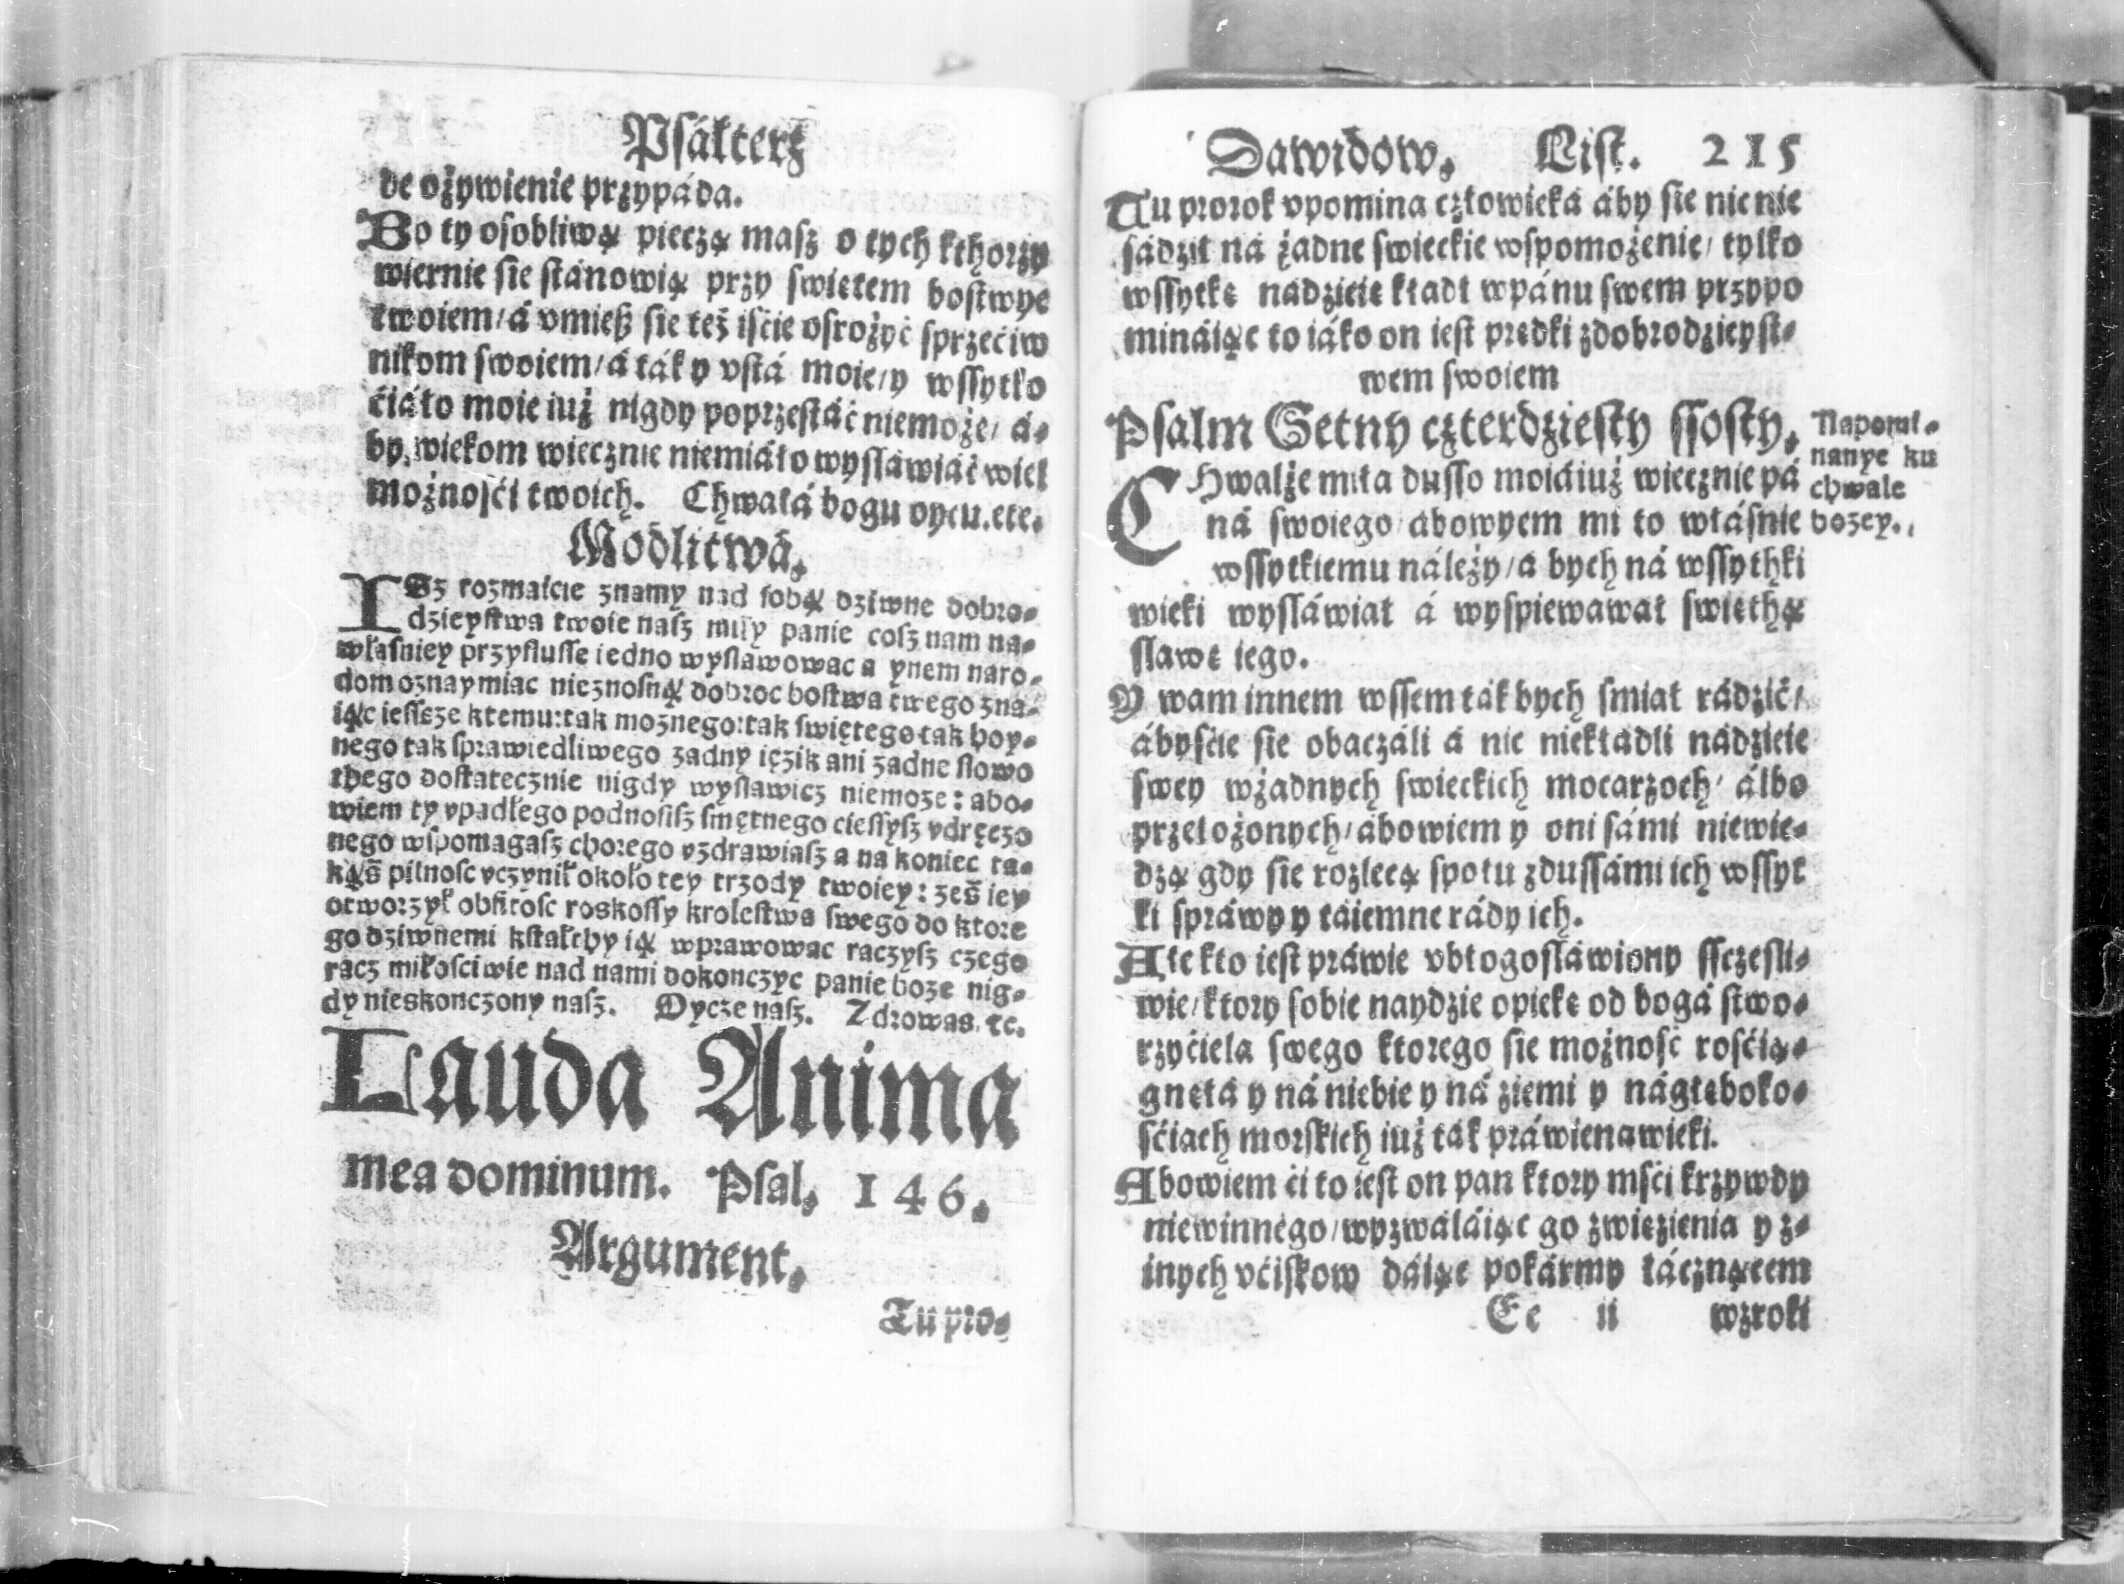 Psałterz
de ożywienie przypáda.
Bo ty osobliwą pieczą masz o tych kthorzy
wiernie sie stánowią przy swiętem bostwye
twoiem/á vmiesz sie też iście osrożyć sprzećiw
nikom swoiem/á ták y vstá moie/y wssytko
ćiáło moie iuż nigdy poprzestáć niemoże/ á⸗
by, wiekom wiecznie niemiáło wysławiáć wiel
możnośći twoich. Chwałá bogu oycu.etc.
Modlitwá.
ISz rozmaicie znamy nad sobą dziwne dobro⸗
dzieystwa twoie nasz miły panie cosz nam na⸗
własniey przyslusse iedno wyslawowac a ynem naro⸗
dom oznaymiac nieznosną dobroc bostwa twego zna⸗
iąc iesscze ktemu:tak moznego:tak swiętego tak hoy⸗
nego tak sprawiedliwego zadny ięzik ani zadne slowo
thego dostatecznie nigdy wyslawicz niemoze: abo⸗
wiem ty vpadłego podnosisz smętnego ciessysz vdręczo
nego wspomagasz chorego vzdrawiasz a na koniec ta⸗
kąs pilnosc vczynił około tey trzody twoiey: zes iey
otworzył obfitosc roskossy krolestwa swego do ktore
go dziwnemi kstałthy ią wprawowac raczysz czego
racz miłosciwie nad nami dokonczyc panie boze nig⸗
dy nieskonczony nasz. Oycze nasz. Zdrowas. tc.
Lauda Anima
mea dominum. Psal. 146.
Argument.
Tu pro⸗
Dawidow. List. 215
Tu prorok vpomina człowieká áby sie nic nie
sádził ná żadne swieckie wspomożenie/ tylko
wssytkę nádzieię kładł w pánu swem przypo
mináiąc to iáko on iest prędki z dobrodzieyst⸗
wem swoiem
Psalm Setny czterdziesty ssosty.
Napomi⸗
nanye ku
chwale
bozey.
CHwalże miła dusso moiá iuż wiecznie pá
ná swoiego/abowyem mi to włásnie
wssytkiemu náleży/a bych ná wssythki
wieki wysláwiał á wyspiewawał swięthą
slawę iego.
Y wam innem wssem ták bych smiał rádzić/
ábyśćie sie obaczáli á nic niekładli nádzieie
swey w żadnych swieckich mocarzoch/ álbo
przełożonych/ábowiem y oni sámi niewie⸗
dzą gdy sie rozlecą społu z dussámi ich wssyt
ki spráwy y táiemne rády ich.
Ale kto iest práwie vbłogosláwiony ssczesli⸗
wie/ktory sobie naydzie opiekę od bogá stwo⸗
rzyćiela swego ktorego sie możność rośćią⸗
gnęłá y ná niebie y ná ziemi y nágłęboko⸗
śćiach morskich iuż ták práwie nawieki.
Abowiem ći to iest on pan ktory mśći krzywdy
niewinnego/wyzwáláiąc go z więzienia y z⸗
inych vćiskow dáiąc pokármy łácznącem
Ee ii wzroki